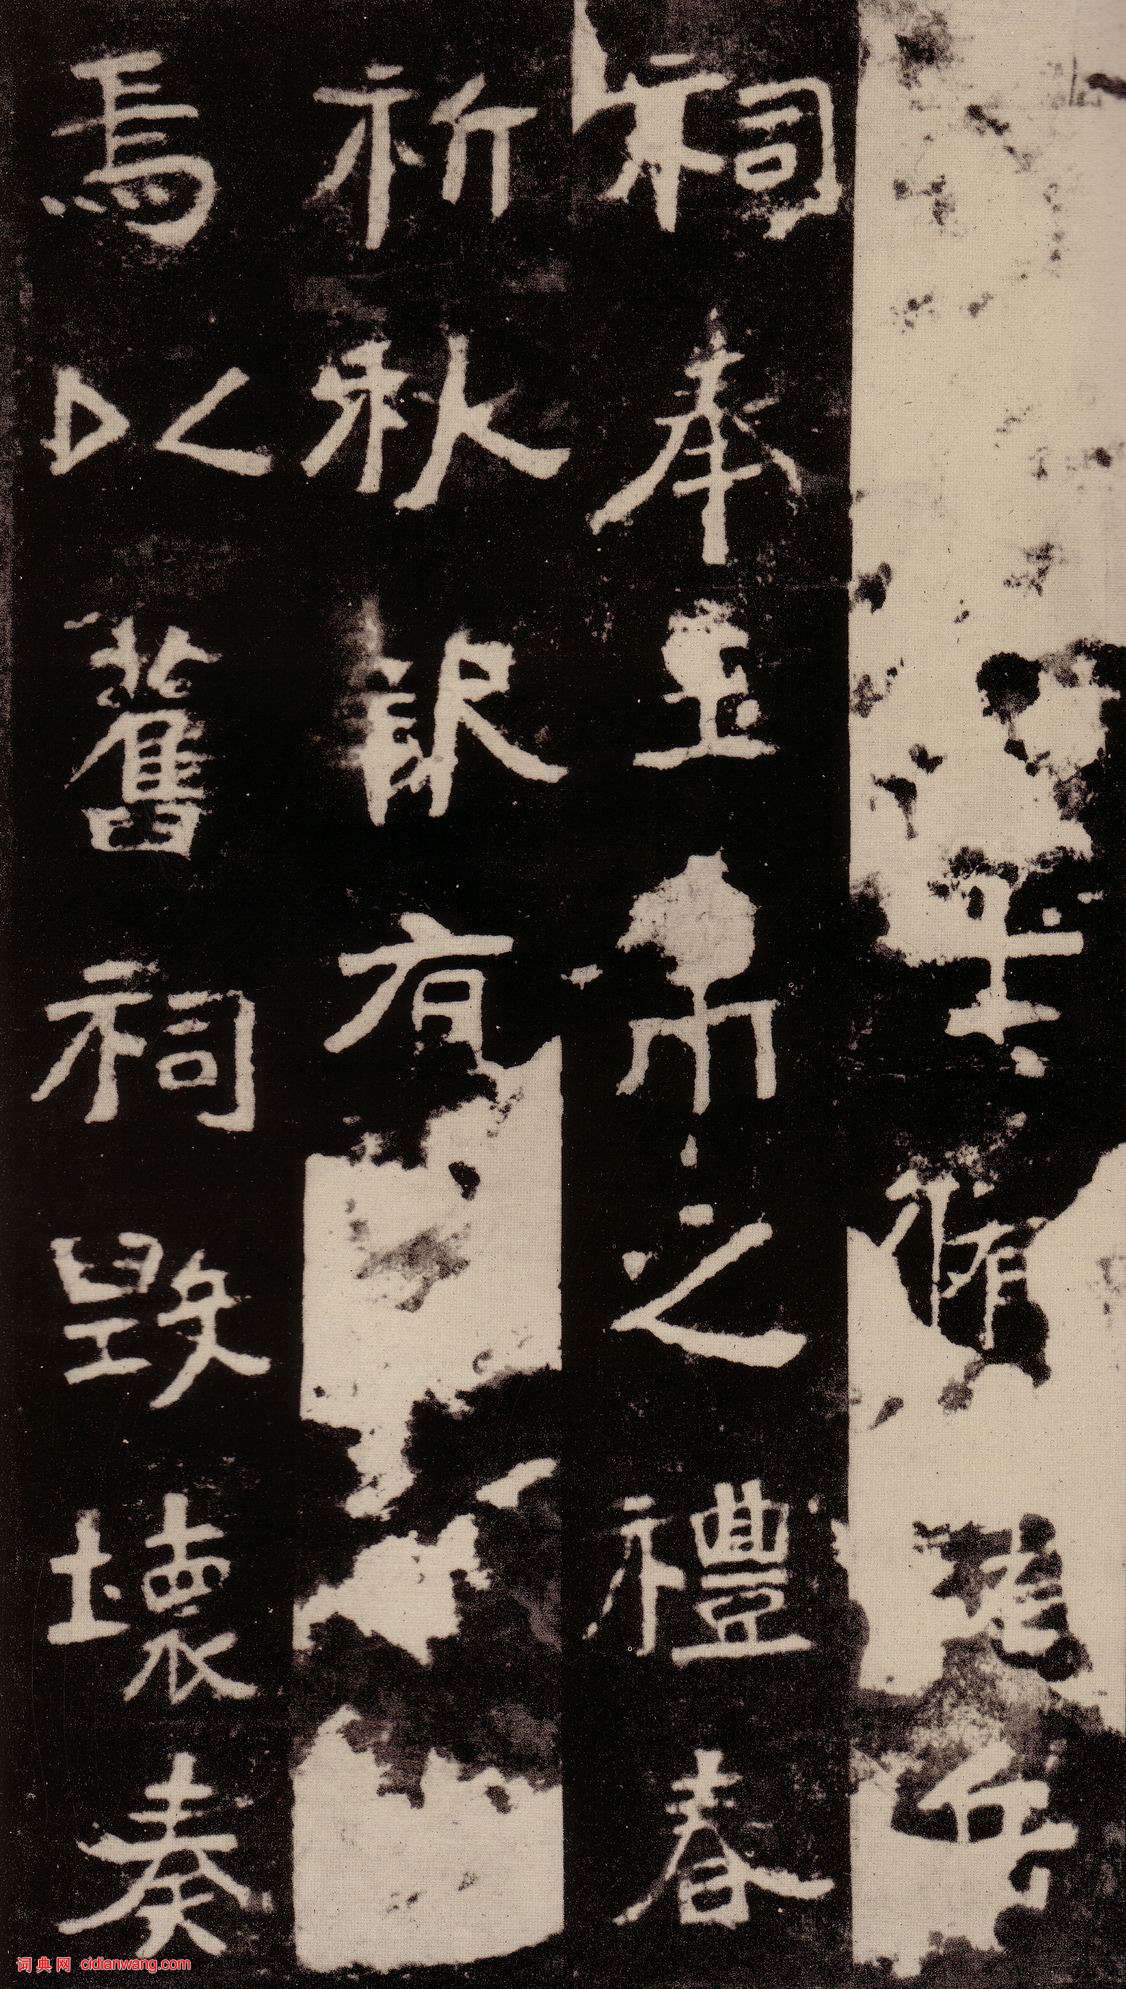 脩
祠奉玉帛之禮春
祈秋報有
焉以舊祠毀壞奏
词典网 cidianwang.com